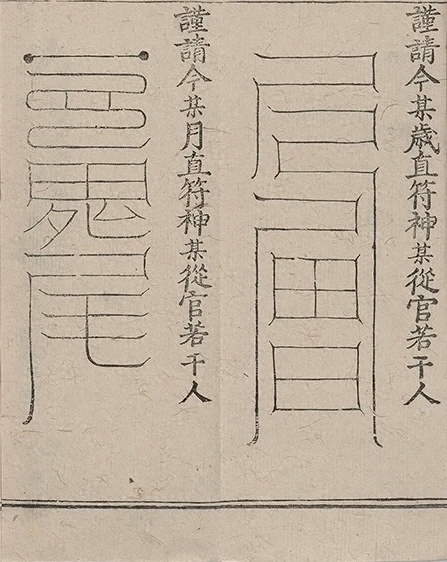 謹請今某歲直符神某從官若干人
謹請今某月直符神某從官若干人